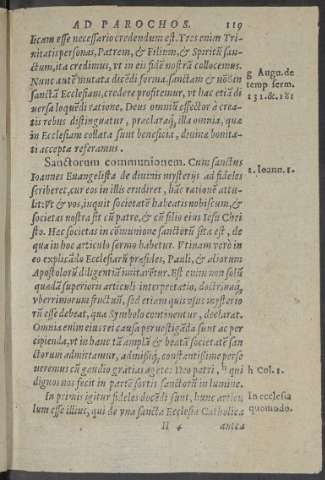 AD PAROCHOS. 119
licam esse necessario credendum est. Tres enim Tri-
nitatis personas, Patrem, & Filium, & Spiritū san-
ctum, ita credimus, vt in eis fidē nostrā collocemus.
Nunc autē mutata dicēdi forma, sanctam & nō in
sanctā Ecclesiam, credere profitemur, vt hac etiā di
uersa loquēdi ratione, Deus omniū effector à crea-
tis rebus distinguatur, praeclaraq́; illa omnia, quae
in Ecclesiam collata sunt beneficia, diuinae bonita-
ti accepta referamus.
g Augu. de
temp. serm.
131. &. 181
Sanctorum communionem. Cùm sanctus
Ioannes Euangelista de diuinis mysterijs ad fideles
scriberet, cur eos in illis erudiret, hāc rationē attu-
lit: Vt & vos, inquit societatē habeatis nobiscum, &
societas nostra sit cū patre, & cū filio eius Iesu Chri
sto. Haec societas in cōmunione sanctorū sita est, de
qua in hoc articulo sermo habetur. Vtinam verò in
eo explicādo Ecclesiarū praesides, Pauli, & aliorum
Apostolorū diligentiā imitarētur. Est enim non solū
quaedā superioris articuli interpretatio, doctrinaq́;
vberrimorum fructuū, sed etiam quis vsus mysterio
rū esse debeat, quae Symbolo continentur, declarat.
Omnia enim eius rei causa peruestigāda sunt ac per
cipienda, vt in hanc tā amplā & beatā societatē san
ctorum admittamur, admissiq́; constantissimè perse
ueremus cū gaudio gratias agētes Deo patri, h qui
dignos nos fecit in partē sortis sanctorū in lumine.
1. Ioann. 1.
h Col. 1.
In primis igitur fideles docēdi sunt, hunc articu
lum esse illius, qui de vna sancta Ecclesia Catholica
In ecclesia
quomodo.
H 4 antea